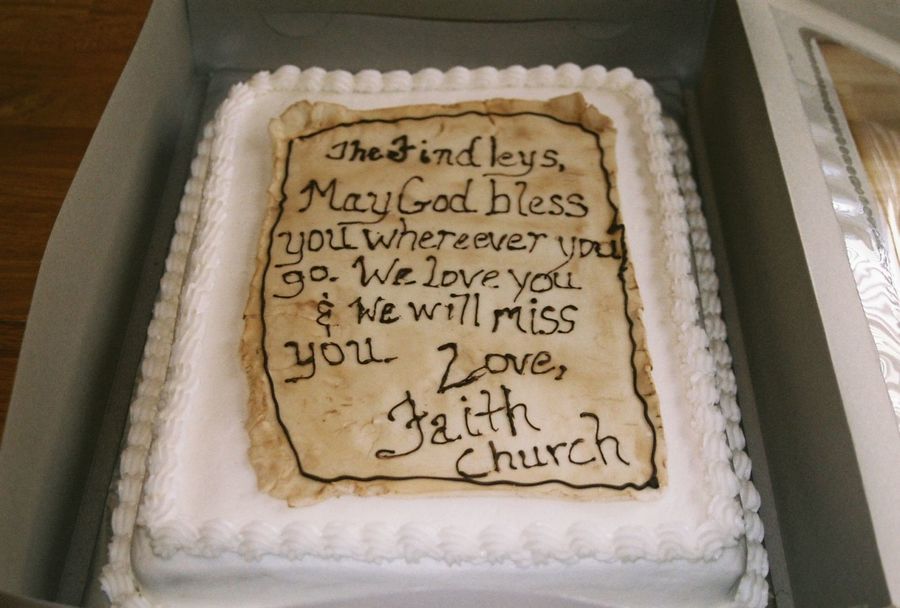 The Findleys,
May God bless
you whereever you
go. We love you
& We will miss
you. Love,
Faith
Church